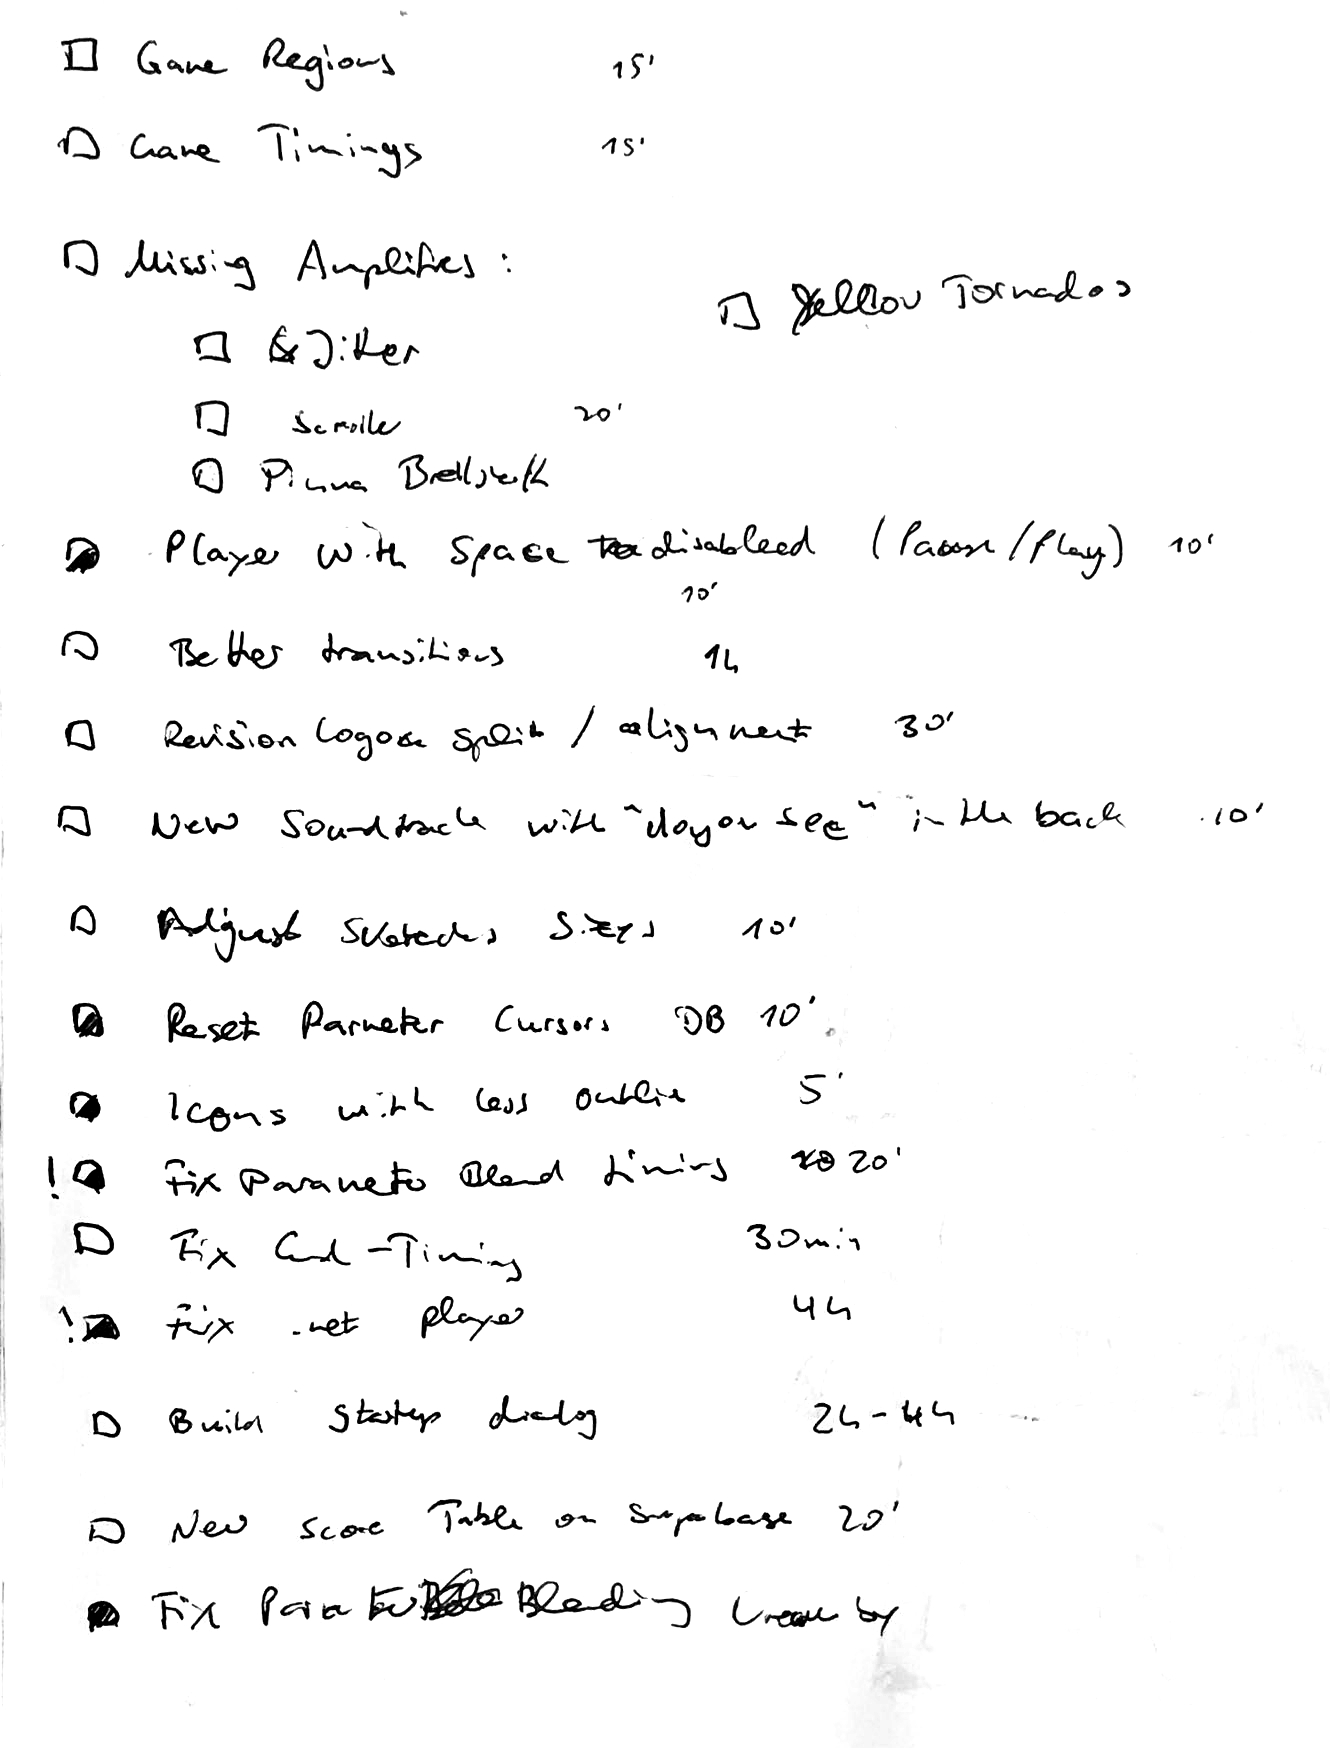 Game Regions 15'
Game Timings 15'
Missing Amplifies:
Yellow Tornados
Jitter
Scroller 20'
Pinna
Player with Space disableed (Pause/Play) 10'
10'
Better transitions 1h
Revision Logo split / alignment 30'
New Soundtrack with "do you see" in the back 10'
Adjust Sketches Sizes 10'
Reset Parmeter Cursors DB 10'
Icons with less outline 5'
! Fix Parameter Blend timing 20'
Fix End-Timing 30min
! Fix .net player 4h
Build Startup dialog 2h-4h
New Score Table on Supabase 20'
Fix Blending